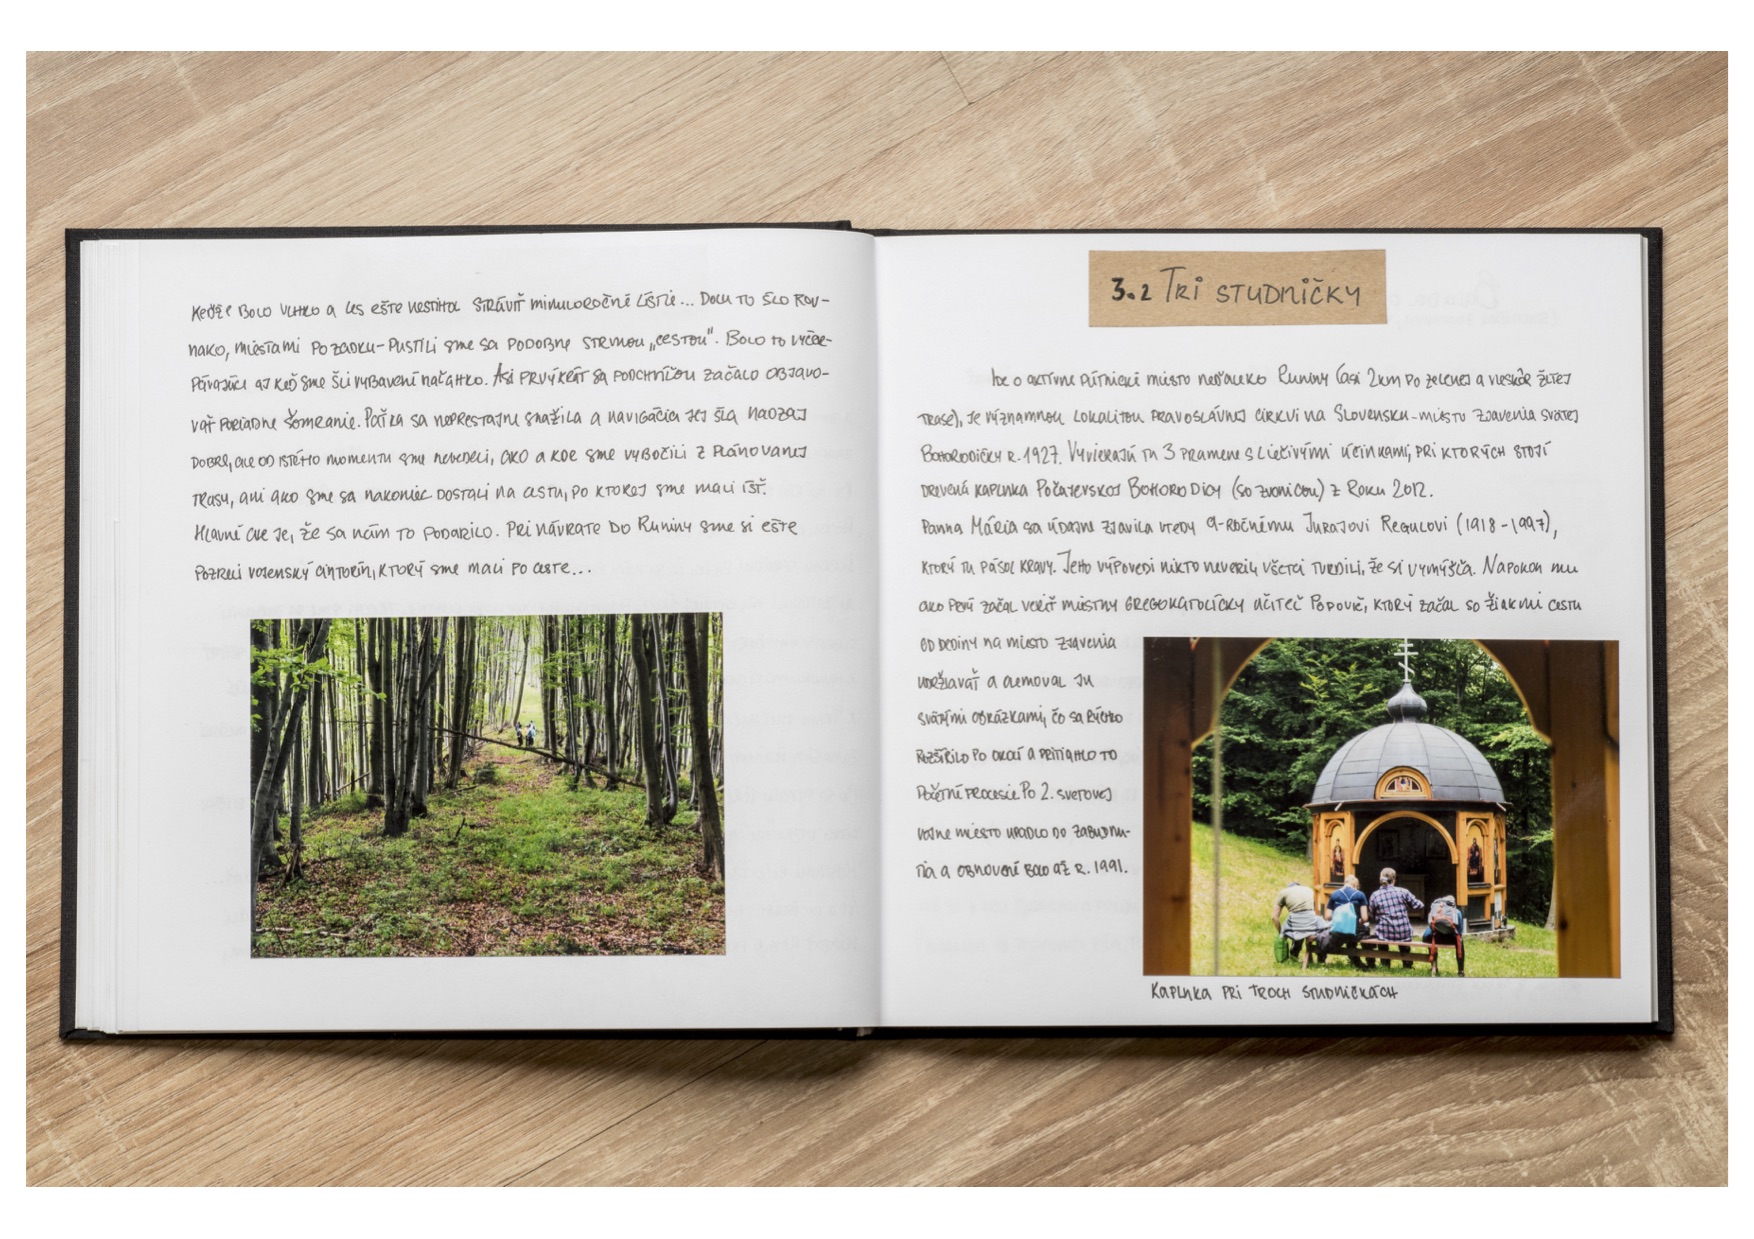 Keďže bolo vlhko a les ešte nestihol stráviť minuloročné lístie... Dolu to šlo rov-
nako, miestami po zadku - pustili sme sa podobne strmou „cestou". Bolo to vyčer-
pávajúce aj keď sme šli vybavení naľahko. Asi prvýkrát sa pochníčou začalo objavo-
vať poriadne šomranie. Paťka sa neprestajne snažila a navigácia jej šla naozaj
dobre, ale od istého momentu sme nevedeli, ako a kde sme vybočili z plánovanej
trasy, ani ako sme sa nakoniec dostali na cestu, po ktorej sme mali ísť.
Hlavné ale je, že sa nám to podarilo. Pri návrate do Runiny sme si ešte
pozreli vojenský cintorín, ktorý sme mali po ceste...
3.2 Tri studničky
Ide o aktívne pútnické miesto neďaleko Runiny (asi 2km po zelenej a neskôr žltej
trase). Je významnou lokalitou pravoslávnej cirkvi na Slovensku - miestu zjavenia svätej
Bohorodičky r. 1927. Vyvierajú tu 3 pramene s liečivými účinkami, pri ktorých stojí
drevená kaplnka Počajevskoj Bohorodicy (so zvonicou) z roku 2012.
Panna Mária sa údajne zjavila vtedy 9-ročnému Jurajovi Regulovi (1918-1997),
ktorý tu pásol kravy. Jeho výpovedi nikto neveril, všetci tvrdili, že si vymýšľa. Napokon mu
ako prvý začal veriť miestny gregokatolícky učiteľ Popovič, ktorý začal so žiakmi cestu
od dediny na miesto zjavenia
udržiavať a lemoval ju
svätými obrázkami, čo sa rýchlo
rozšírilo po okolí a pritiahlo to
početné procesie. Po 2. svetovej
vojne miesto upadlo do zabudnu-
tia a obnovené bolo až r. 1991.
Kaplnka pri troch studničkách